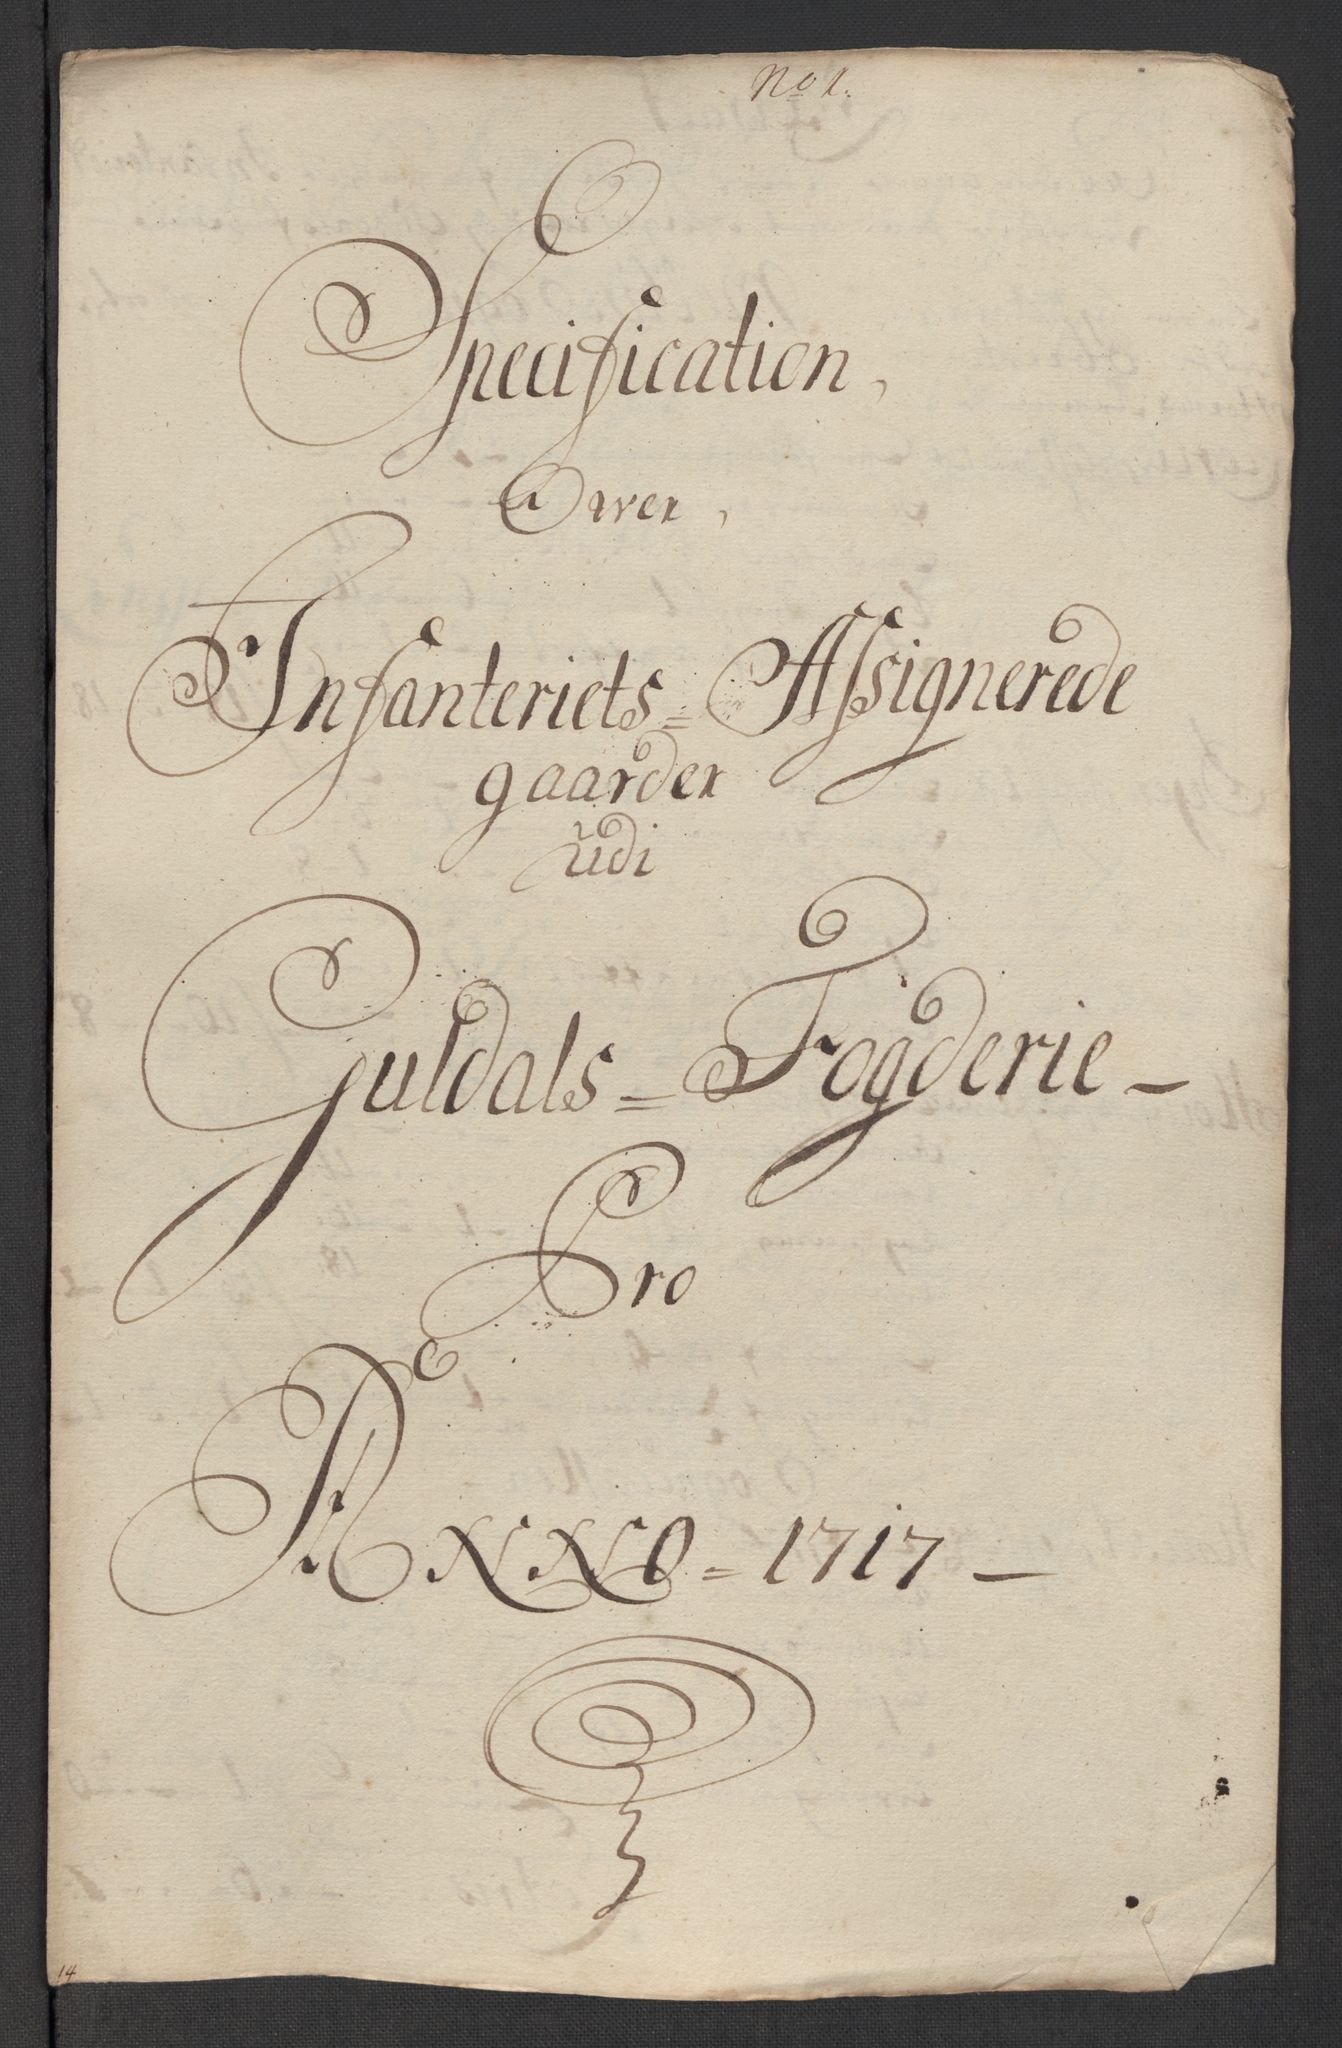 No 1.
Specification,
Over,
Infanteriets = Assignerede
gaarder
udi
Guldals = Fogderie -
Pro
ANNO = 1717 -
14